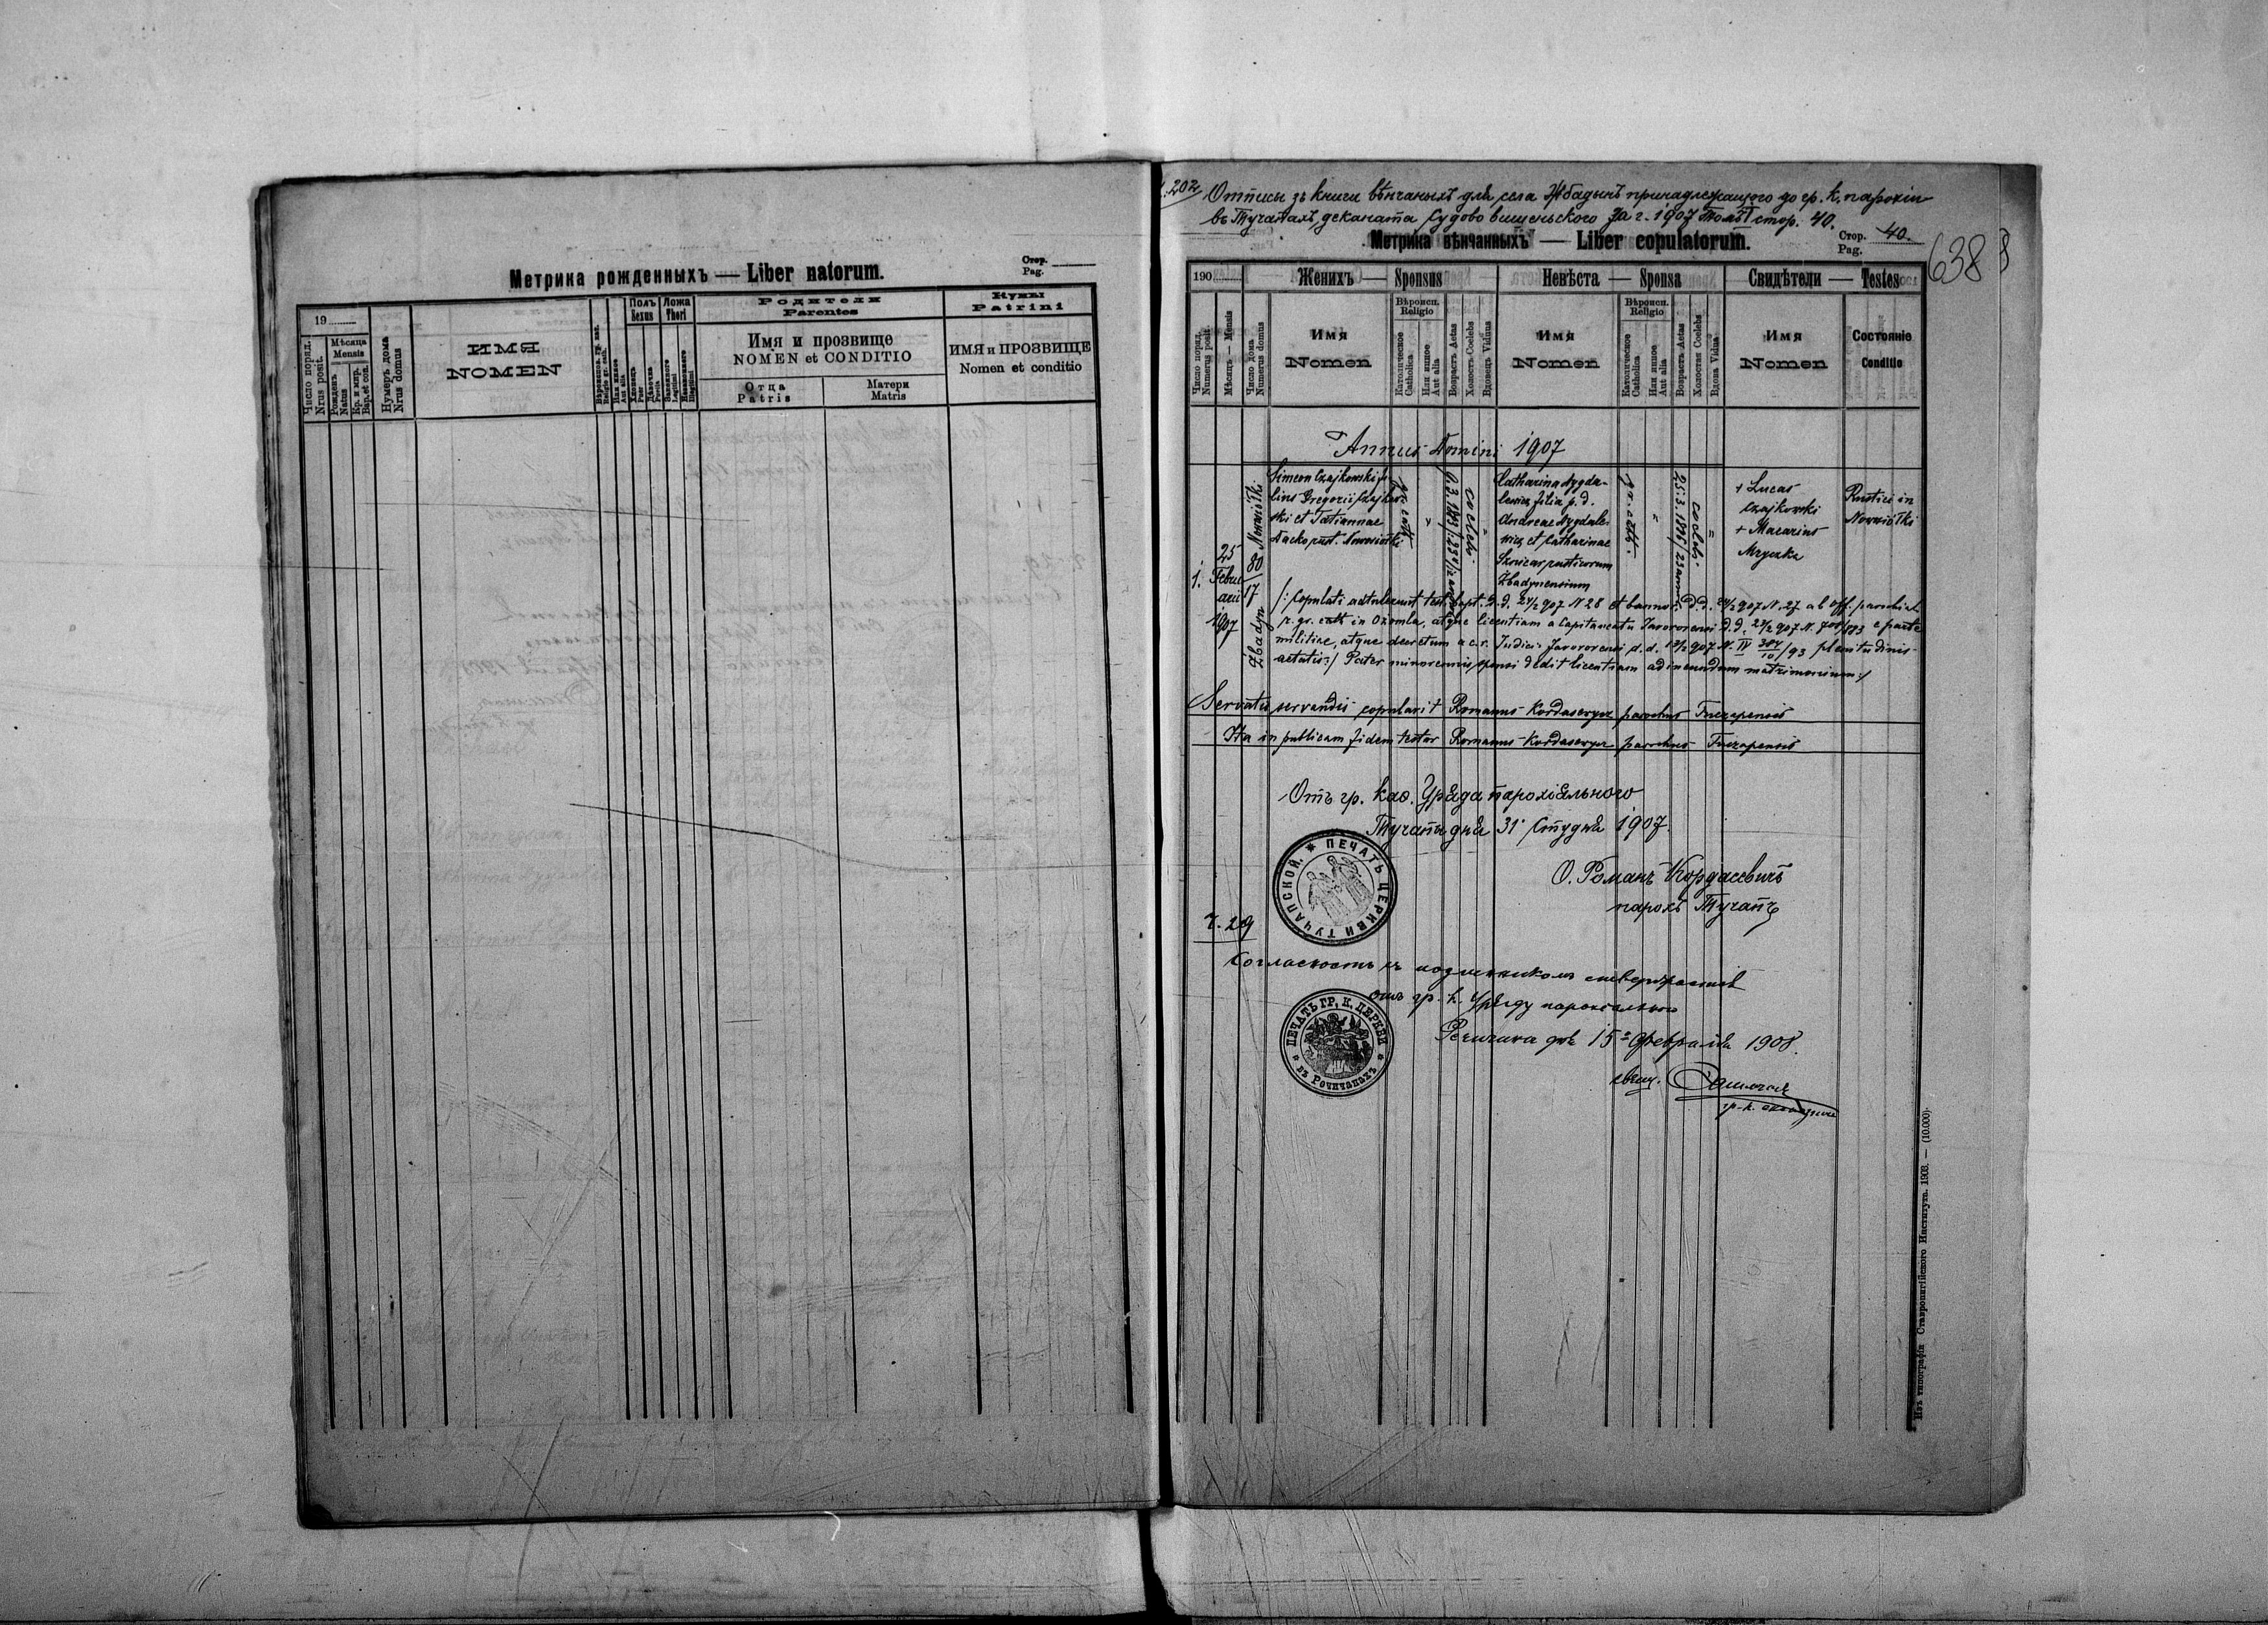 Метрика рожденныхъ — Liber natorum.
Стор.
Pag.
19
Число поряд.
Nrus posit.
Мѣсяца
Mensis
Рожденъ
Natus
Кр. и мѵр.
Bap. et con.
Нумеръ дома
Nrus domus
ИМЯ
NOMEN
Полъ
Sexus
Ложа
Thori
Или инное
Aut alia
Хлопецъ
Puer
Дѣвочка
Puella
Законного
Legitimi
Незаконного
Illegitimi
Родители
Parentes
Имя и прозвище
NOMEN et CONDITIO
Отца
Patris
Матери
Matris
Кумы
Patrini
ИМЯ и ПРОЗВИЩЕ
Nomen et conditio
202
Отписъ зъ книги вѣнчаныхъ для села Жбадынъ принадлежащого до гр. к. парохіи
въ Тучапахъ, деканата Судово вишеньского за г. 1907 Томъ I стор. 40.
Метрика вѣнчанныхъ — Liber copulatorum.
Стор.
Pag. 40.
638
190
Женихъ — Sponsus
Невѣста — Sponsa
Свидѣтели — Testes
Число поряд.
Numerus posit.
Мѣсяцъ — Mensis
Число дома
Numerus domus
Имя
Nomen
Вѣроисп.
Religio
Католическое
Catholica
Или инное
Aut alia
Возрастъ Aetas
Холостъ Coelebs
Вдовецъ Viduus
Имя
Nomen
Вѣроисп.
Religio
Католическое
Catholica
Или инное
Aut alia
Возрастъ Aetas
Холостая Coelebs
Вдова Vidua
Имя
Nomen
Состояніе
Conditio
Annus Domini 1907
1.
25
Februarii
1907
Nowosiółki
80
17
Żbadyn
Simeon Czajkowski fi-
lius Gregorii Czajkow-
ski et Tatiannae
Dacko rust. Nowosiółki
gr. cath.
coelebs
Catharina Mygda-
lewicz filia p. d.
Andreae Mygdale-
wicz et Catharinae
rusticorum
Żbadynensium
gr. cath.
coelebs
+ Lucas
Czajkowski
+ Macarius
Mryczka
Rustici in
Nowosiółki
/: Copulati adtulerunt test. bapt. d. d. 24/2 907 N. 28 et bannor. d. d. 24/2 907 N. 27 ab off. parochiali
r. gr. cath in Ożomla, atque licentiam a Capitaneatu Javoroviensi d. d. 22/2 907 N. e parte
militiae, atque decretum a c. r. Judicii Javoroviensi d. d. 907 N. IV plenitudinis
aetatis:/ Pater minorennis sponsi dedit licentiam ad ineundum matrimonium:/
Servatis servandis copulavit Romanus Kordasewycz parochus Tuczapensis
Ita in publicam fidem testor Romanus Kordasewycz parochus Tuczapensis
Отъ гр. каѳ. Уряда парохіяльного
Тучапы дня 31 Студня 1907.
О. Романъ Кордасевичъ
парохъ Тучапъ
* ПЕЧАТЬ ЦЕРКВИ ТУЧАПСКОЙ.
Ч. 29
Согласность съ подлинникомъ ствержаєтся
отъ гр. к. Уряду парохіального
Рочична дня 15 Февраля 1908.
свящ.
ПЕЧАТЬ ГР. К. ЦЕРКВИ * въ Рочичанахъ *
Изъ типографіи Ставропигійского Института. 1903. — (10.000).